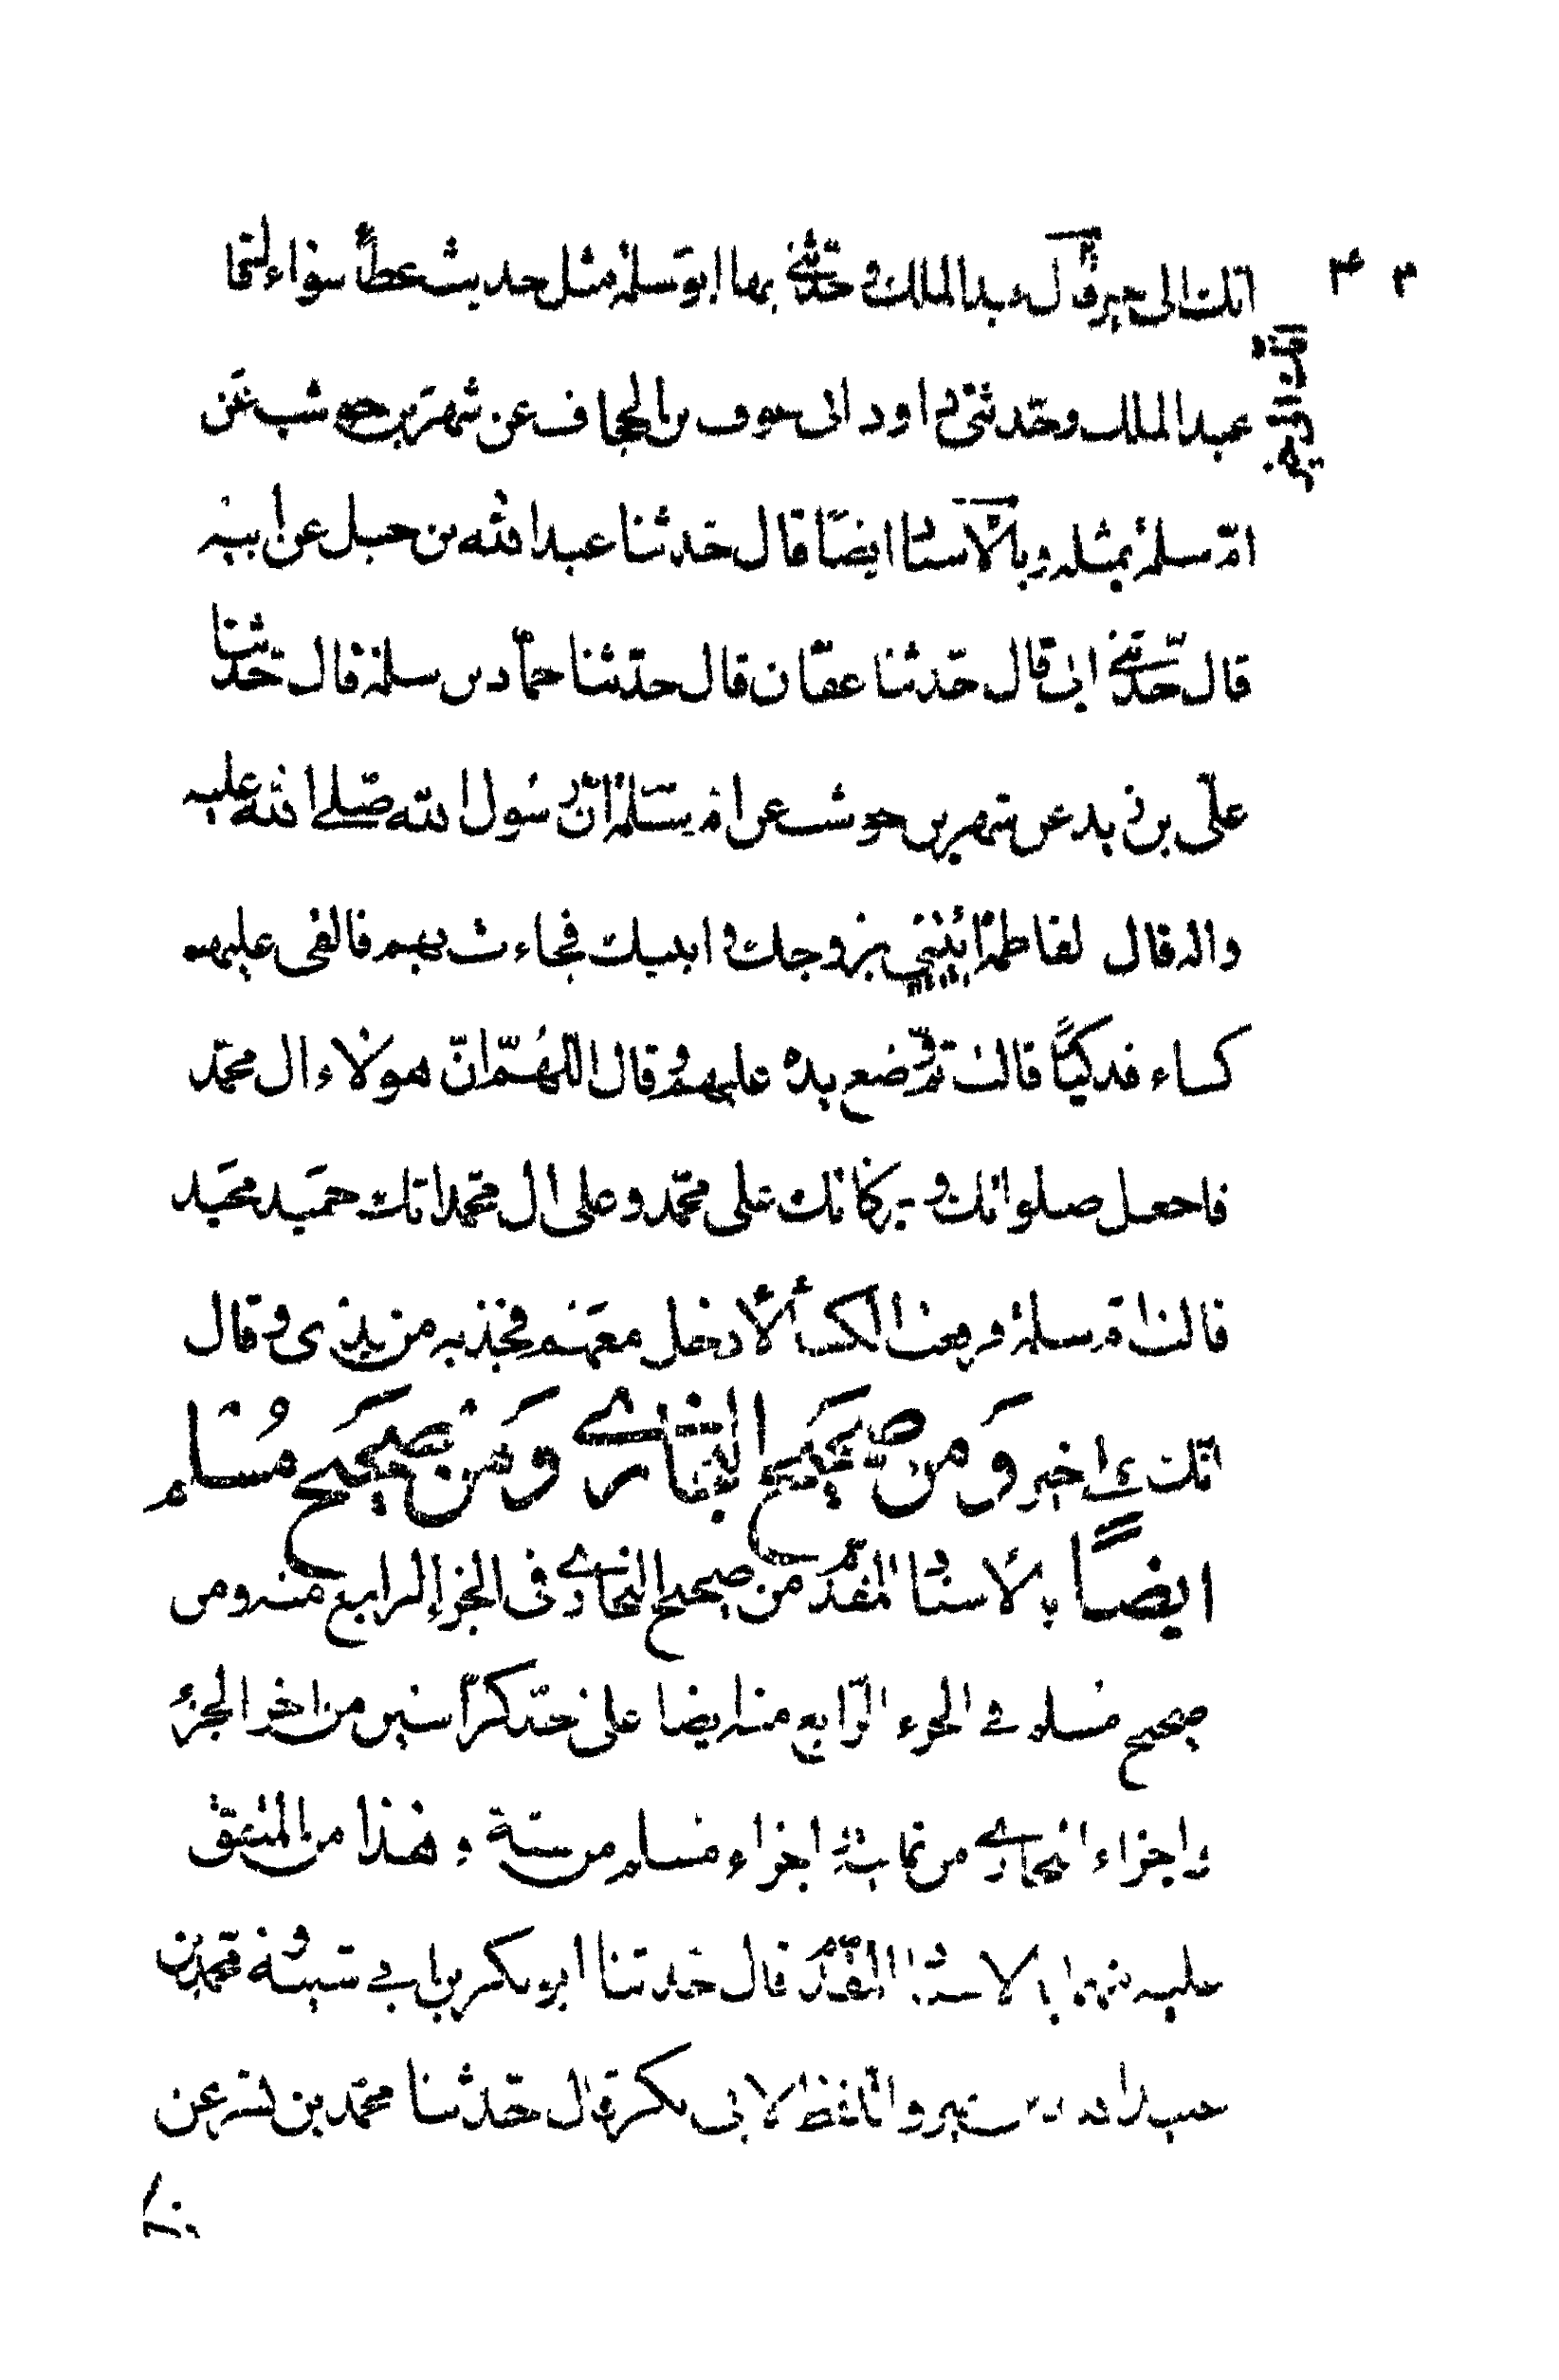 انك الى خير قال عبد الملك وحدثني بها ابو سلمة مثل حديث عطاء سواء
عبد الملك وحدثني داود ابى عوف بن الحجاف عن شهر بن حوشب عن
ام سلمة بمثله وبالاسناد ايضا قال حدثنا عبد الله بن حنبل عن ابيه
قال حدثني ابى قال حدثنا عفان قال حدثنا حماد بن سلمة قال حدثنا
على بن زيد عن شهر بن حوشب عن ام سلمة ان رسول الله صلى الله عليه
واله قال لفاطمة ائتيني بزوجك وابنيك فجاءت بهم فالقى عليهم
كساء فدكيا قالت ثم وضع يده عليهم وقال اللهم ان هؤلاء ال محمد
فاجعل صلواتك وبركاتك على محمد وعلى ال محمد انك حميد مجيد
قالت ام سلمة فرفعت الكساء لادخل معهم فجذبه من يدى وقال
انك على خير ومن صحيح البخاري ومن صحيح مسلم
ايضا بالاسناد المقدم من صحيح البخاري فى الجزء الرابع منه ومن
صحيح مسلم في الجزء الرابع منه ايضا على حد كراسين من اخر الجزء
واجزاء البخاري من ثمانية اجزاء مسلم من ستة وهذا من المتفق
عليه منهما بالاسناد المقدم قال حدثنا ابو بكر بن ابي شيبة ومحمد بن
عبد الله بن نمير واللفظ لابى بكر قال حدثنا محمد بن بشر عن